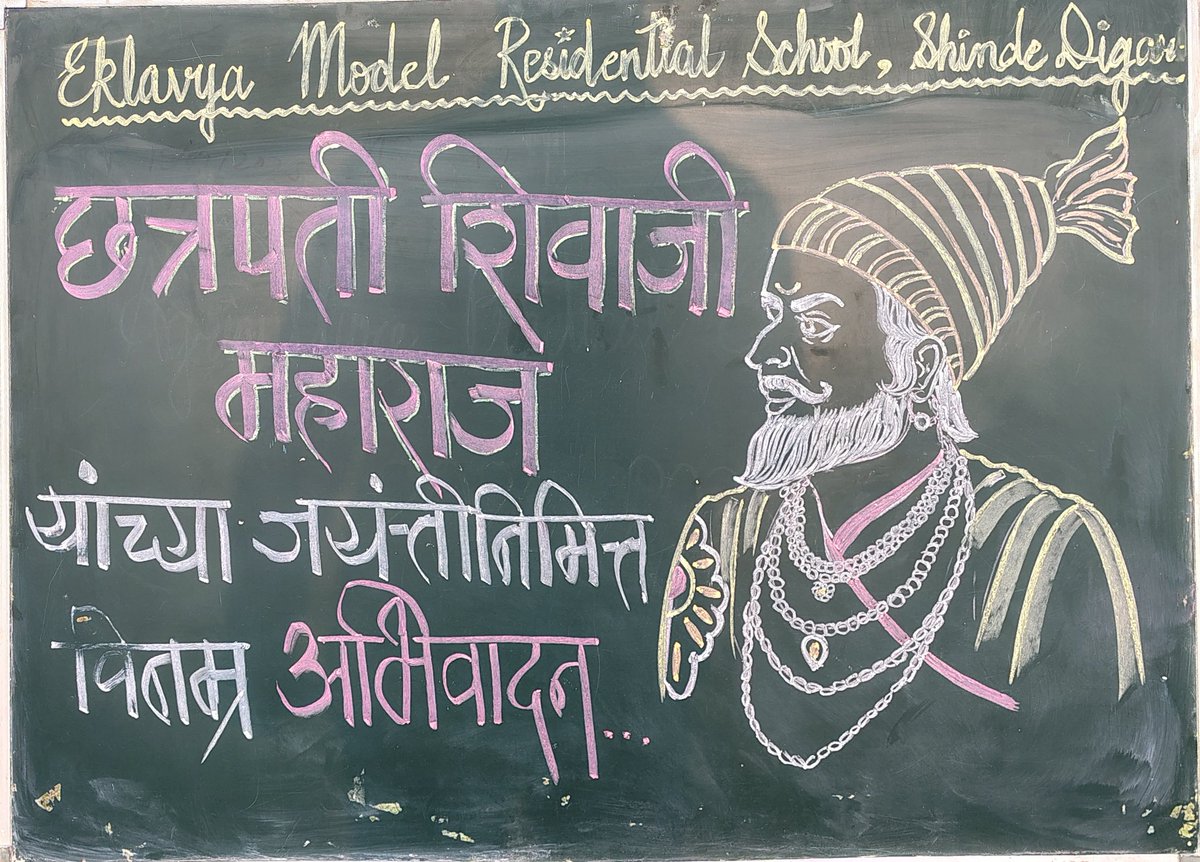 Eklavya Model Residential School, Shinde Digar
छत्रपती शिवाजी
महाराज
यांच्या जयंत्तीनिमित्त
विनम्र अभिवादन...